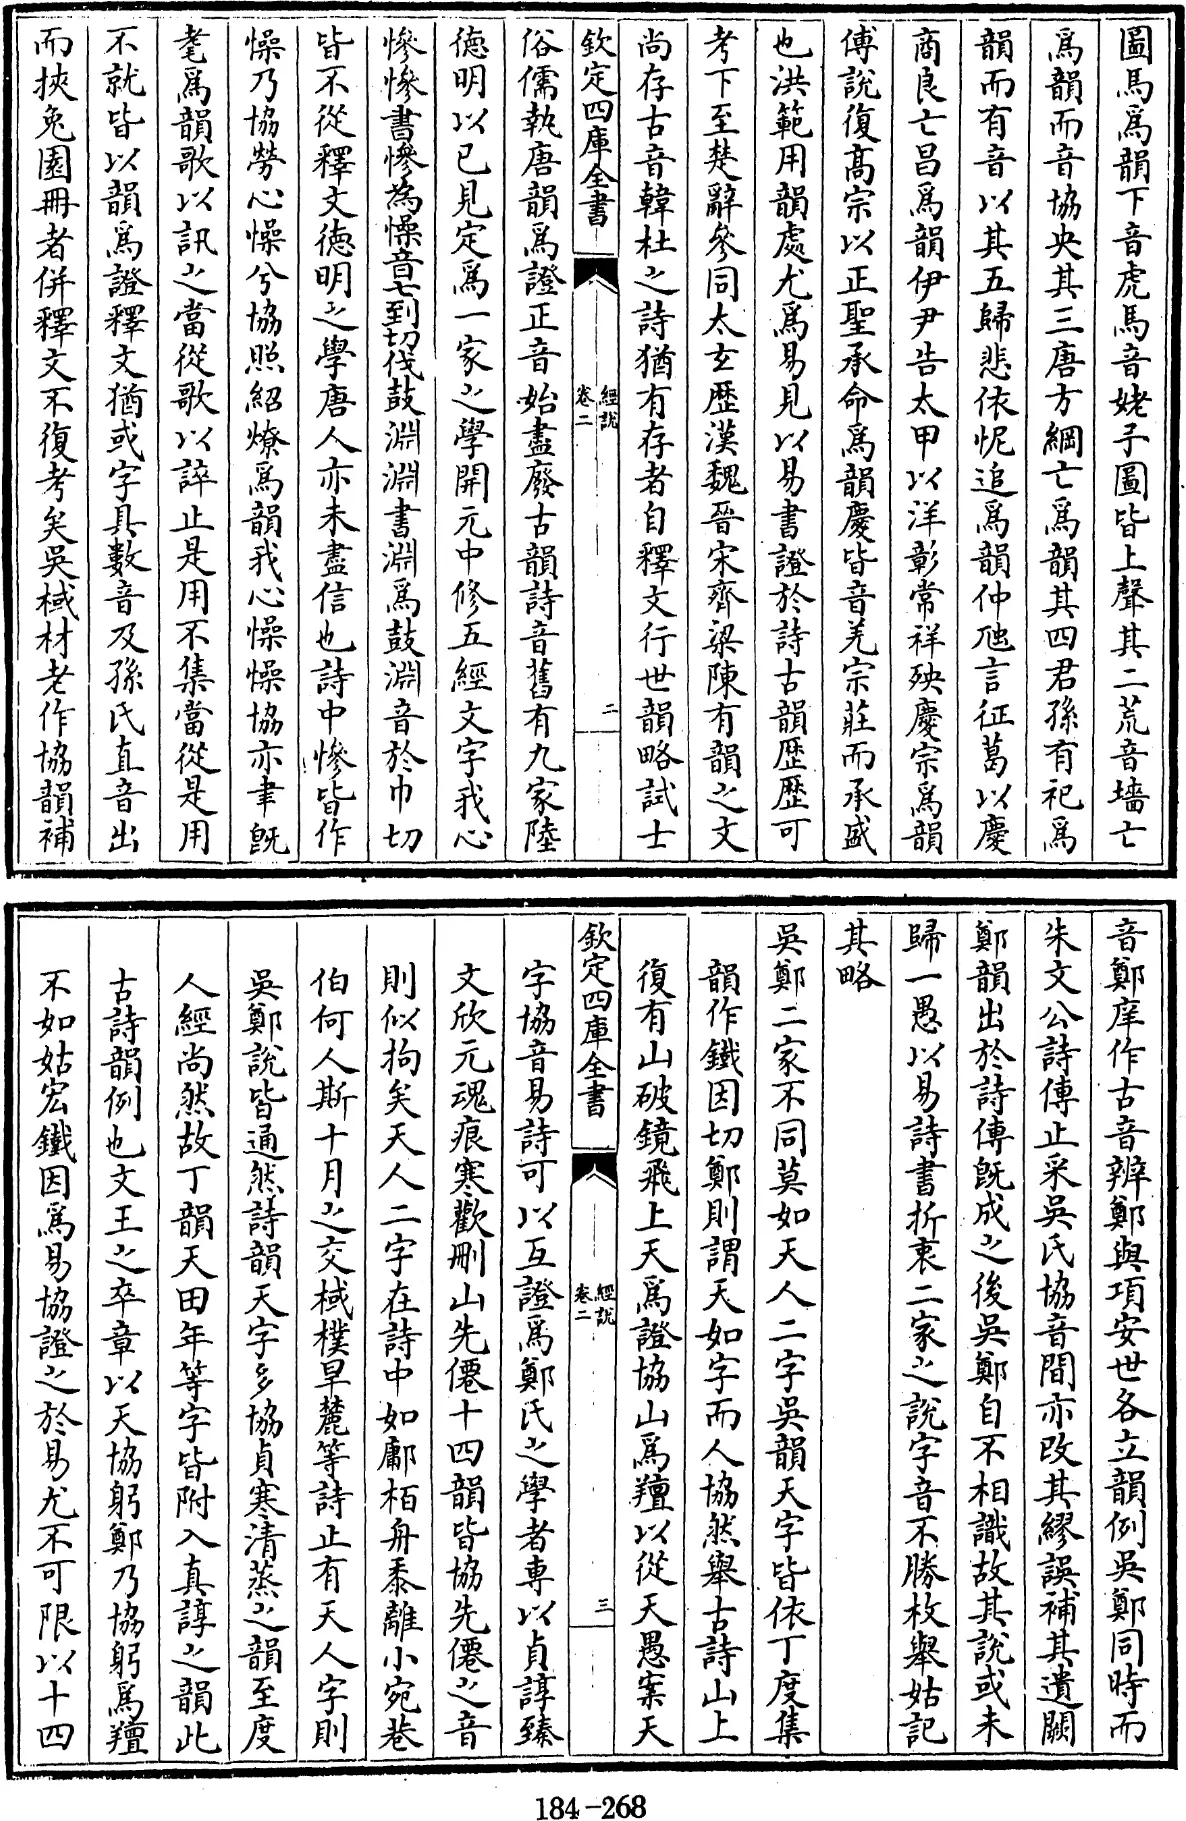 圖馬爲韻下音虎馬音姥子圖皆上聲其二荒音墻亡
爲韻而音協央其三唐方綱亡爲韻其四君孫有祀爲
韻而有音以其五歸悲依怩追爲韻仲虺言征葛以慶
商良亡昌爲韻伊尹告太甲以洋彰常祥殃慶宗爲韻
傅說復髙宗以正聖承命爲韻慶皆音羌宗莊而承盛
也洪範用韻處尤爲易見以易書證於詩古韻歴歴可
考下至楚辭參同太玄歴漢魏晉宋齊梁陳有韻之文
尚存古音韓杜之詩猶有存者自釋文行世韻略試士
欽定四庫全書
經說
卷二
二
俗儒執唐韻爲證正音始盡廢古韻詩音舊有九家陸
德明以已見定爲一家之學開元中修五經文字我心
慘慘書慘為懆音七到切伐鼓淵淵書淵爲鼓淵音於巾切
皆不從釋文徳明之學唐人亦未盡信也詩中慘皆作
懆乃協勞心懆兮協照紹燎爲韻我心懆懆協亦聿旣
耄爲韻歌以訊之當從歌以誶止是用不集當從是用
不就皆以韻爲證釋文猶或字具數音及孫氏直音出
而挾兔園冊者併釋文不復考矣吳棫材老作協韻補
音鄭庠作古音辨鄭與項安世各立韻例吳鄭同時而
朱文公詩傳止采吳氏協音間亦改其繆誤補其遺闕
鄭韻出於詩傳旣成之後吳鄭自不相識故其説或未
歸一愚以易詩書折衷二家之說字音不勝枚舉姑記
其略
吳鄭二家不同莫如天人二字吳韻天字皆依丁度集
韻作鐵因切鄭則謂天如字而人協然舉古詩山上
復有山破鏡飛上天爲證協山爲羶以從天愚案天
欽定四庫全書
經說
卷二
三
字協音易詩可以互證爲鄭氏之學者專以貞諄臻
文欣元魂痕寒歡刪山先僊十四韻皆協先僊之音
則似拘矣天人二字在詩中如鄘栢舟黍離小宛巷
伯何人斯十月之交棫樸旱麓等詩止有天人字則
吳鄭說皆通然詩韻天字多協貞寒清蒸之韻至度
人經尚然故丁韻天田年等字皆附入真諄之韻此
古詩韻例也文王之卒章以天協躬鄭乃協躬爲羶
不如姑宏鐵因爲易協證之於易尤不可限以十四
184-268